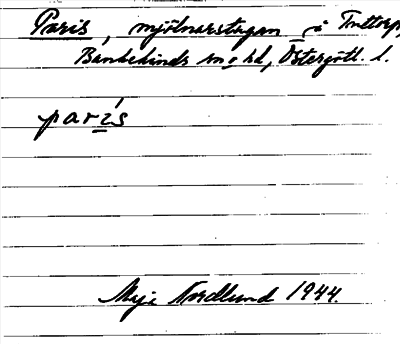 Paris, mjölnarstugan i Truttorp,
Bankekinds sn o hd, Östergötl. l.
parís
Maja Nordlund 1944.